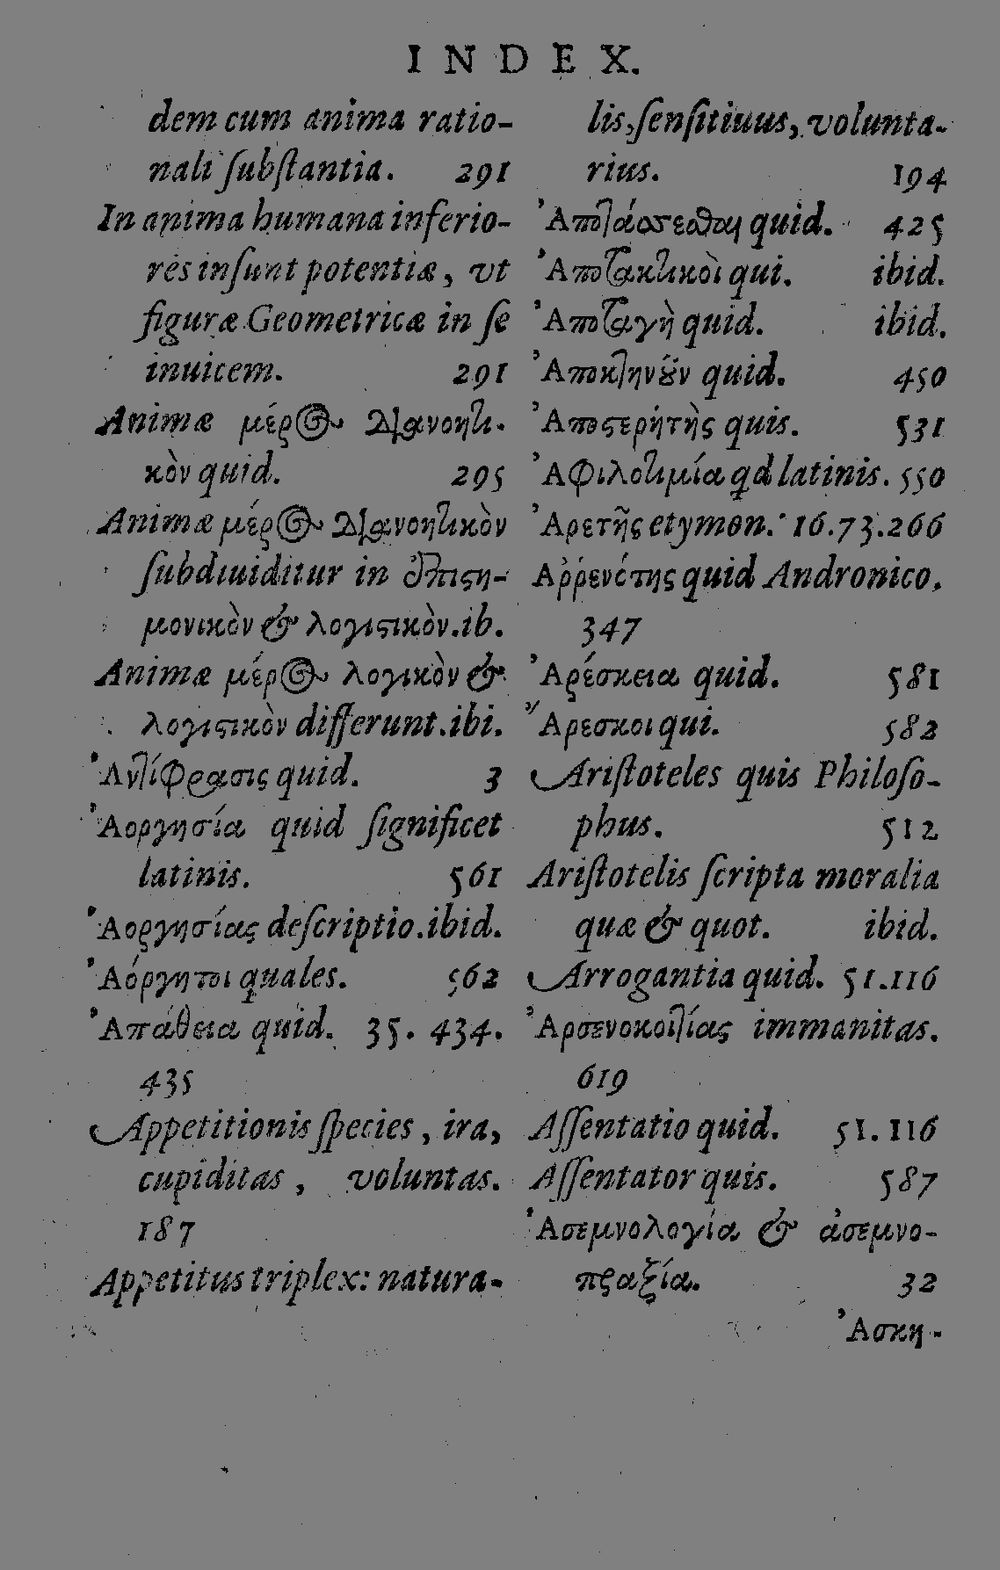 INDEX.
dem cum anima ratio-
nali ſubſtantia. 291
In anima humana inferio-
res inſunt potentiæ, vt
figuræ Geometricæ in ſe
inuicem. 291
Animæ μέρος διανοητι-
κὸν quid. 295
Animæ μέρος διανοητικὸν
ſubdiuiditur in ἐπιστη-
μονικὸν & λογιστικὸν. ib.
Animæ μέρος λογικὸν &
λογιστικὸν differunt. ibi.
Ἀντίφρασις quid. 3
Ἀοργησία quid ſignificet
latinis. 561
Ἀοργησίας deſcriptio. ibid.
Ἀόργητοι quales. 562
Ἀπάθεια quid. 35. 434.
435
Appetitionis ſpecies, ira,
cupiditas, voluntas.
187
Appetitus triplex: natura-
lis, ſenſitiuus, volunta-
rius. 194
Ἀποτάσσεσθαι quid. 425
Ἀποτακτικοὶ qui. ibid.
Ἀποταγὴ quid. ibid.
Ἀποκτηνοῦν quid. 450
Ἀποστερητὴς quis. 531
Ἀφιλοτιμία qd latinis. 550
Ἀρετῆς etymon. 16.73.266
Ἀῤῥενότης quid Andronico.
347
Ἀρέσκεια quid. 581
Ἄρεσκοι qui. 582
Ariſtoteles quis Philoſo-
phus. 512
Ariſtotelis ſcripta moralia
quæ & quot. ibid.
Arrogantia quid. 51.116
Ἀρσενοκοιτίας immanitas.
619
Aſſentatio quid. 51. 116
Aſſentator quis. 587
Ἀσεμνολογία & ἀσεμνο-
πραξία. 32
Ἀσκη-